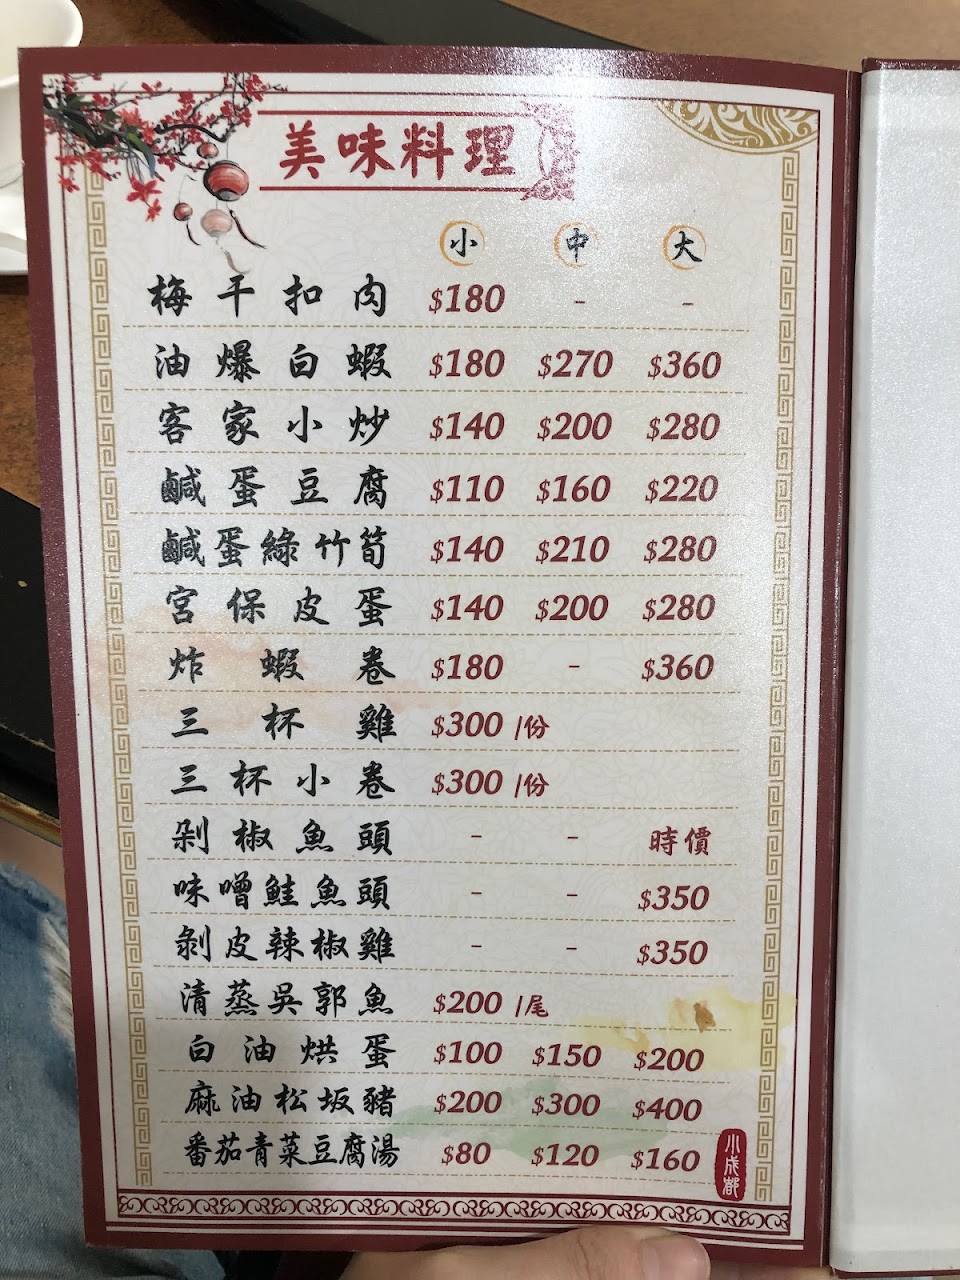 美味料理
小 中 大
梅干扣肉 $180 - -
油爆白蝦 $180 $270 $360
客家小炒 $140 $200 $280
鹹蛋豆腐 $110 $160 $220
鹹蛋綠竹筍 $140 $210 $280
宮保皮蛋 $140 $200 $280
炸蝦卷 $180 - $360
三杯雞 $300 /份
三杯小卷 $300 /份
剁椒魚頭 - - 時價
味噌鮭魚頭 - - $350
剝皮辣椒雞 - - $350
清蒸吳郭魚 $200 /尾
白油烘蛋 $100 $150 $200
麻油松坂豬 $200 $300 $400
番茄青菜豆腐湯 $80 $120 $160
小成都